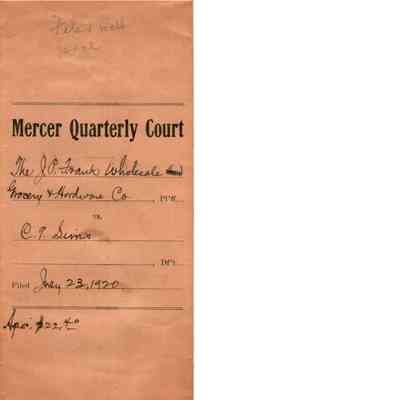 Mercer Quarterly Court
The J. P. Frank Wholesale
Grocery & Hardware Co , PFF.
vs.
C. T. Sims
, DFT.
Filed July 23, 1920.
$22.40